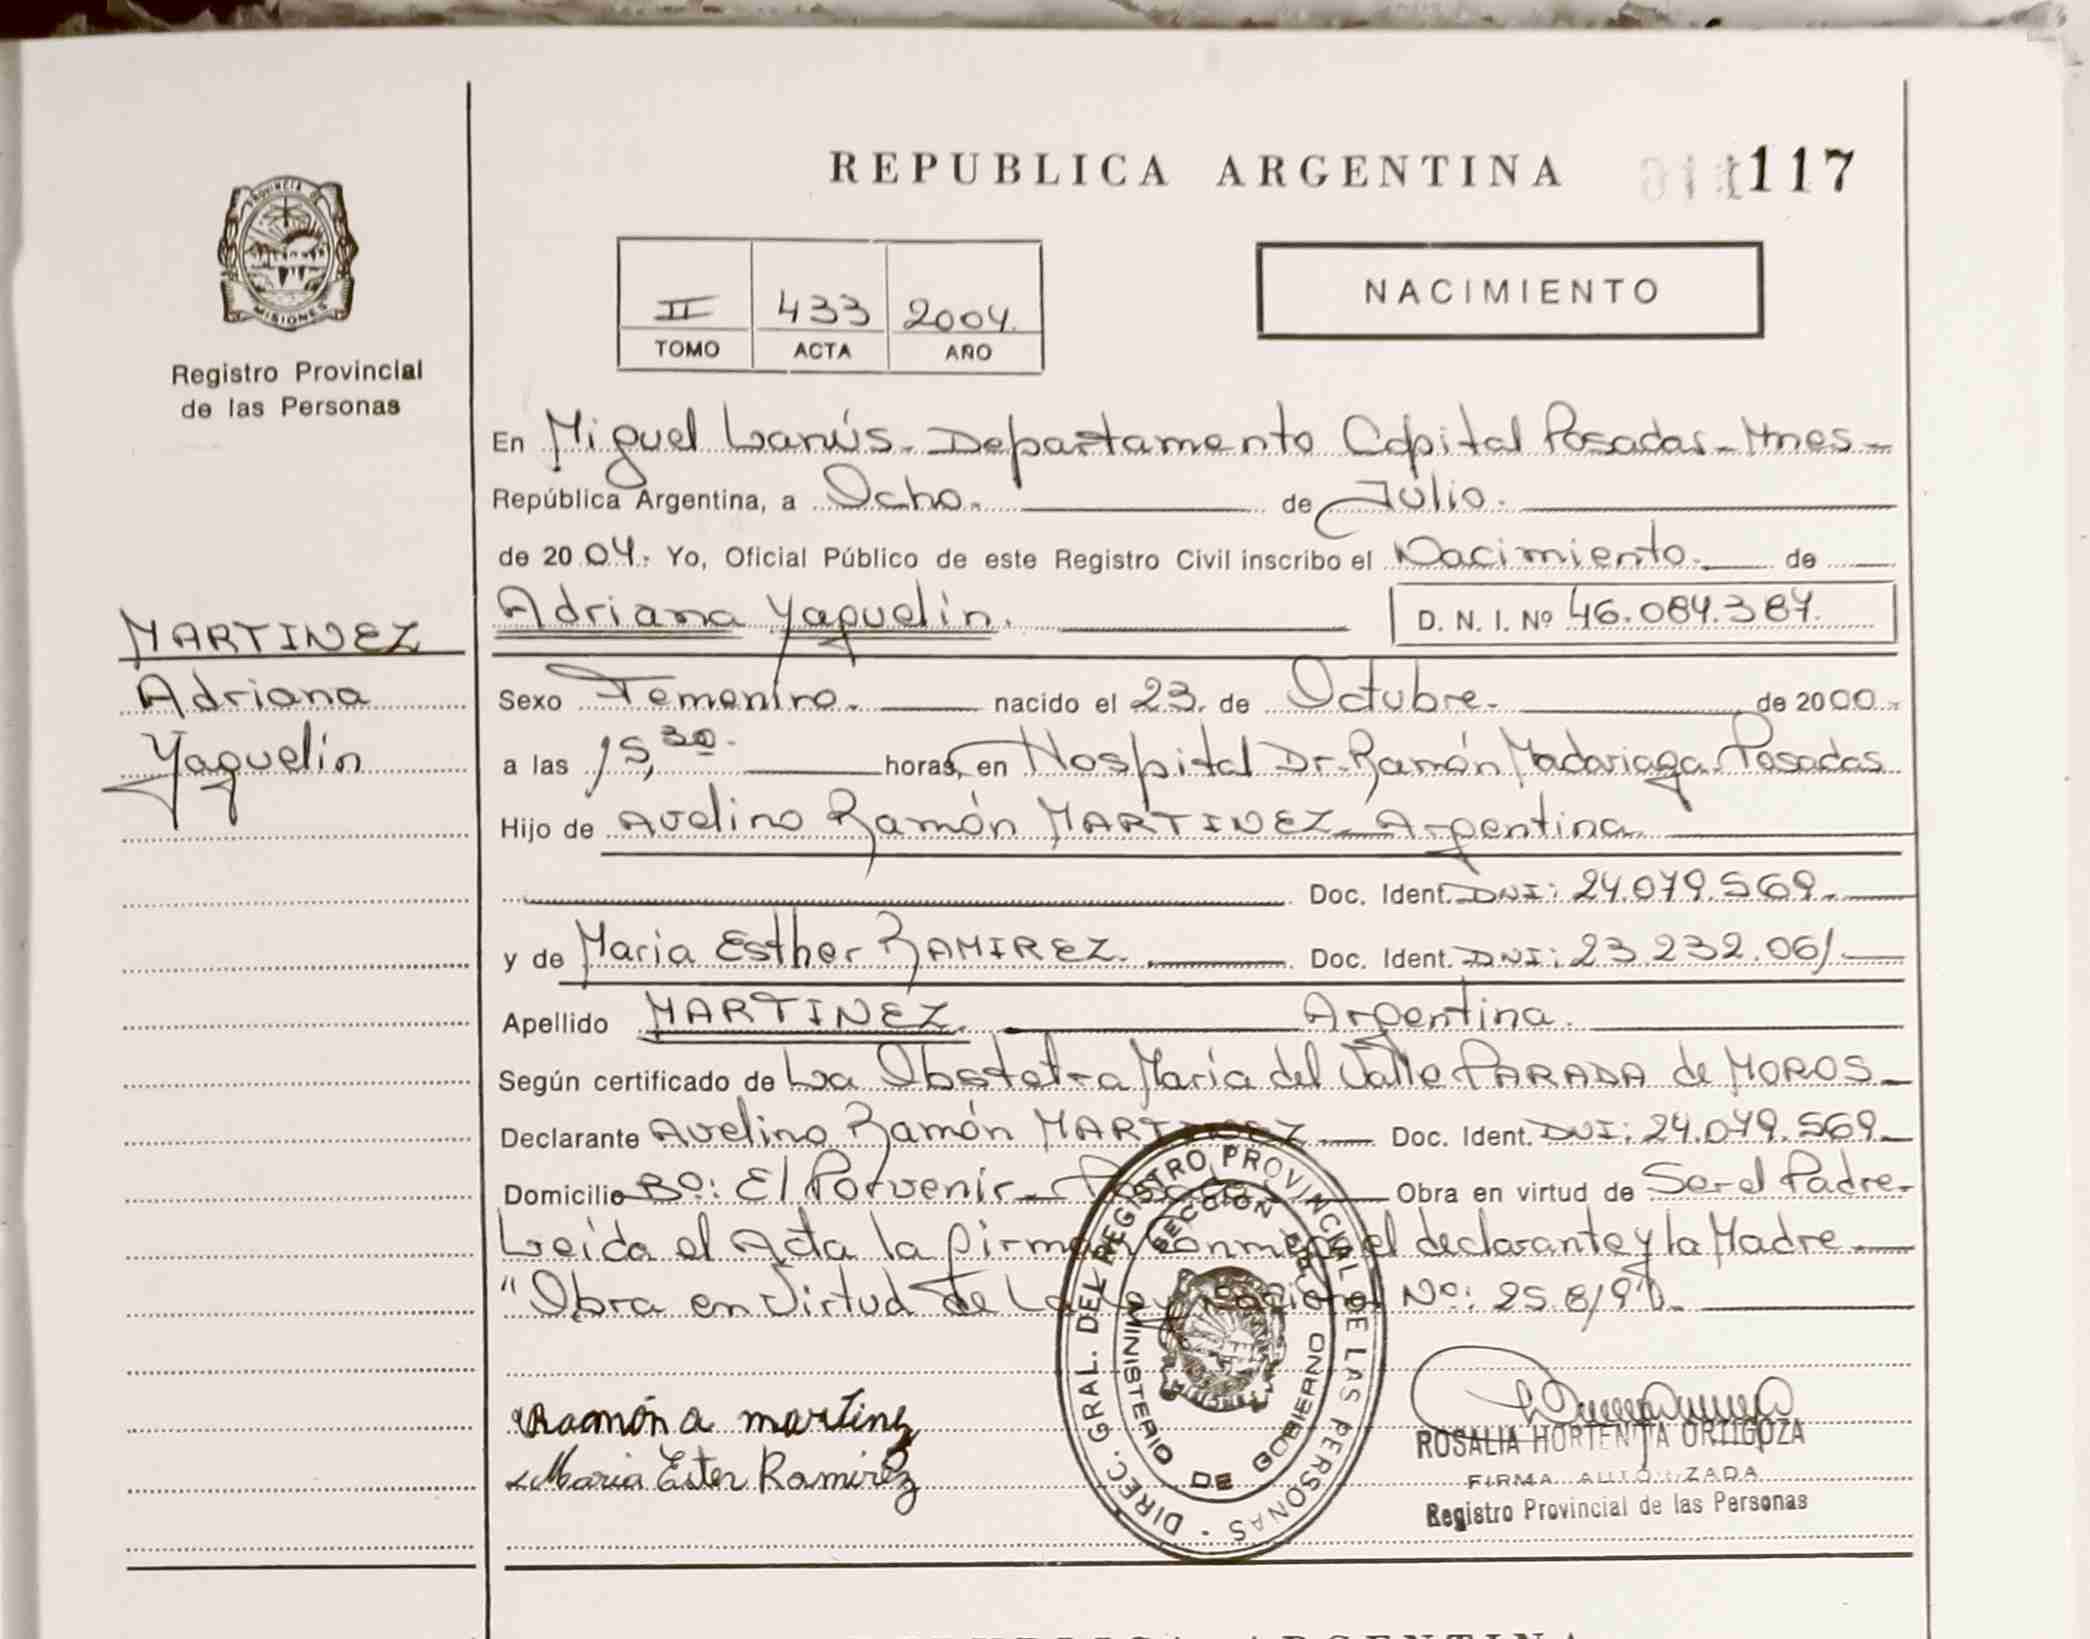 REPUBLICA ARGENTINA
117
PROVINCIA DE
MISIONES
Registro Provincial
de las Personas
II 433 2004.
TOMO ACTA AÑO
NACIMIENTO
En Miguel Lanús - Departamento Capital Posadas - Mnes -
República Argentina, a Ocho. de Julio.
de 2004. Yo, Oficial Público de este Registro Civil inscribo el Nacimiento. de
Adriana Yaquelin. D. N. I. Nº 46.084.387.
MARTINEZ
Adriana
Yaquelin
Sexo Femenino. nacido el 23. de Octubre. de 2000.
a las 15,30. horas, en Hospital Dr. Ramón Madariaga. Posadas
Hijo de Avelino Ramón MARTINEZ - Argentina
Doc. Ident. DNI: 24.079.569.
y de Maria Esther RAMIREZ. Doc. Ident. DNI: 23.232.061
Apellido MARTINEZ. Argentina.
Según certificado de La Obstetra María del Valle PARADA de MOROS -
Declarante Avelino Ramón MARTINEZ Doc. Ident. DNI: 24.079.569
Domicilio Bº: El Porvenir - Obra en virtud de Ser el Padre -
Leida el Acta la firman conmigo el declarante y la Madre
"Obra en Virtud De La Ley Nº:
DIREC. GRAL. DEL REGISTRO PROVINCIAL DE LAS PERSONAS
MINISTERIO DE GOBIERNO
Ramón a martinez
Maria Ester Ramirez
ROSALIA HORTENCIA ORTIGOZA
FIRMA AUTORIZADA
Registro Provincial de las Personas